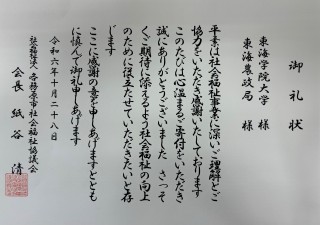 御礼状
東海学院大学 様
東海農政局 様
平素は社会福祉事業に深いご理解とご
協力をいただき感謝いたしております
このたびは心温まるご寄付をいただき
誠にありがとうございました さっそ
くご期待に添えるよう社会福祉の向上
のために役立たせていただきたいと存
じます
ここに感謝の意を申しあげますととも
に慎んで御礼申しあげます
令和六年十月二十八日
社会福祉法人 各務原市社会福祉協議会
会長 紙谷 清